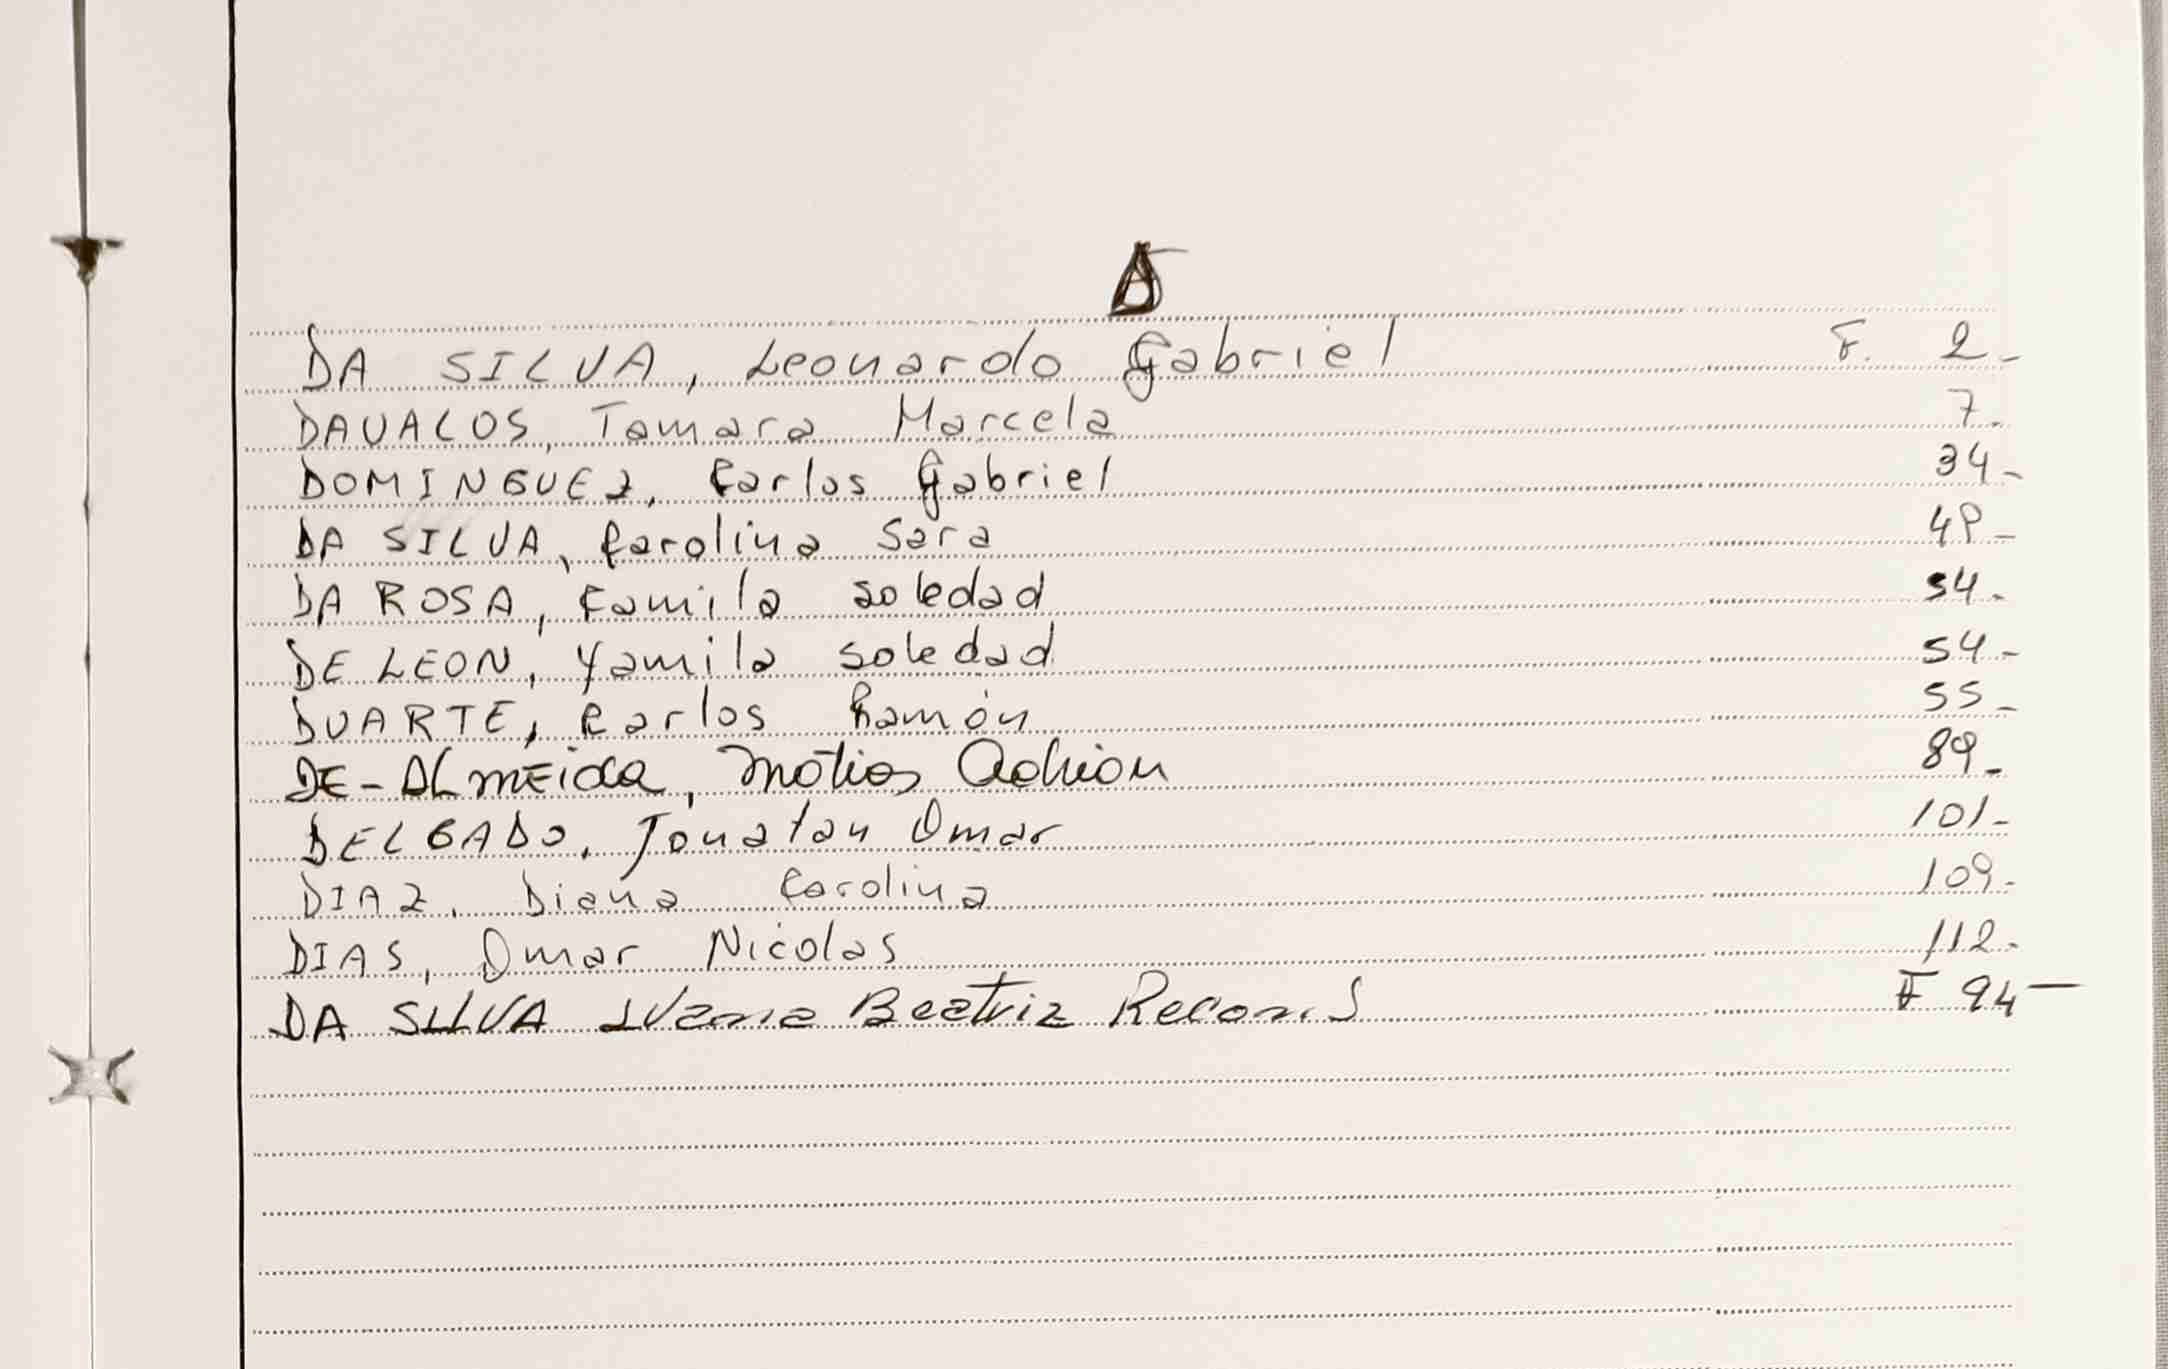 D
DA SILVA, Leonardo Gabriel F. 2-
DAVALOS, Tamara Marcela 7-
DOMINGUEZ, Carlos Gabriel 34-
DA SILVA, Carolina Sara 49-
DA ROSA, Camila Soledad 54-
DE LEON, Yamila Soledad 54-
DUARTE, Carlos Ramón 55-
DE-ALMEIDA, Matias Adrian 89-
DELGADO, Jonatan Omar 101-
DIAZ, Diana Carolina 109-
DIAS, Omar Nicolas 112-
DA SILVA Ivana Beatriz F 94-